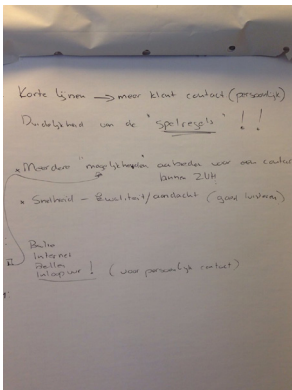 Korte lijnen → meer klant contact (persoonlijk)
Duidelijkheid van de "spelregels" !!
* Meerdere "mogelijkheden" aanbieden voor een contact
binnen ZUH
* Snelheid - kwaliteit/aandacht (goed luisteren)
Bellen
Internet
Bellen
Inloopuur! (voor persoonlijk contact)